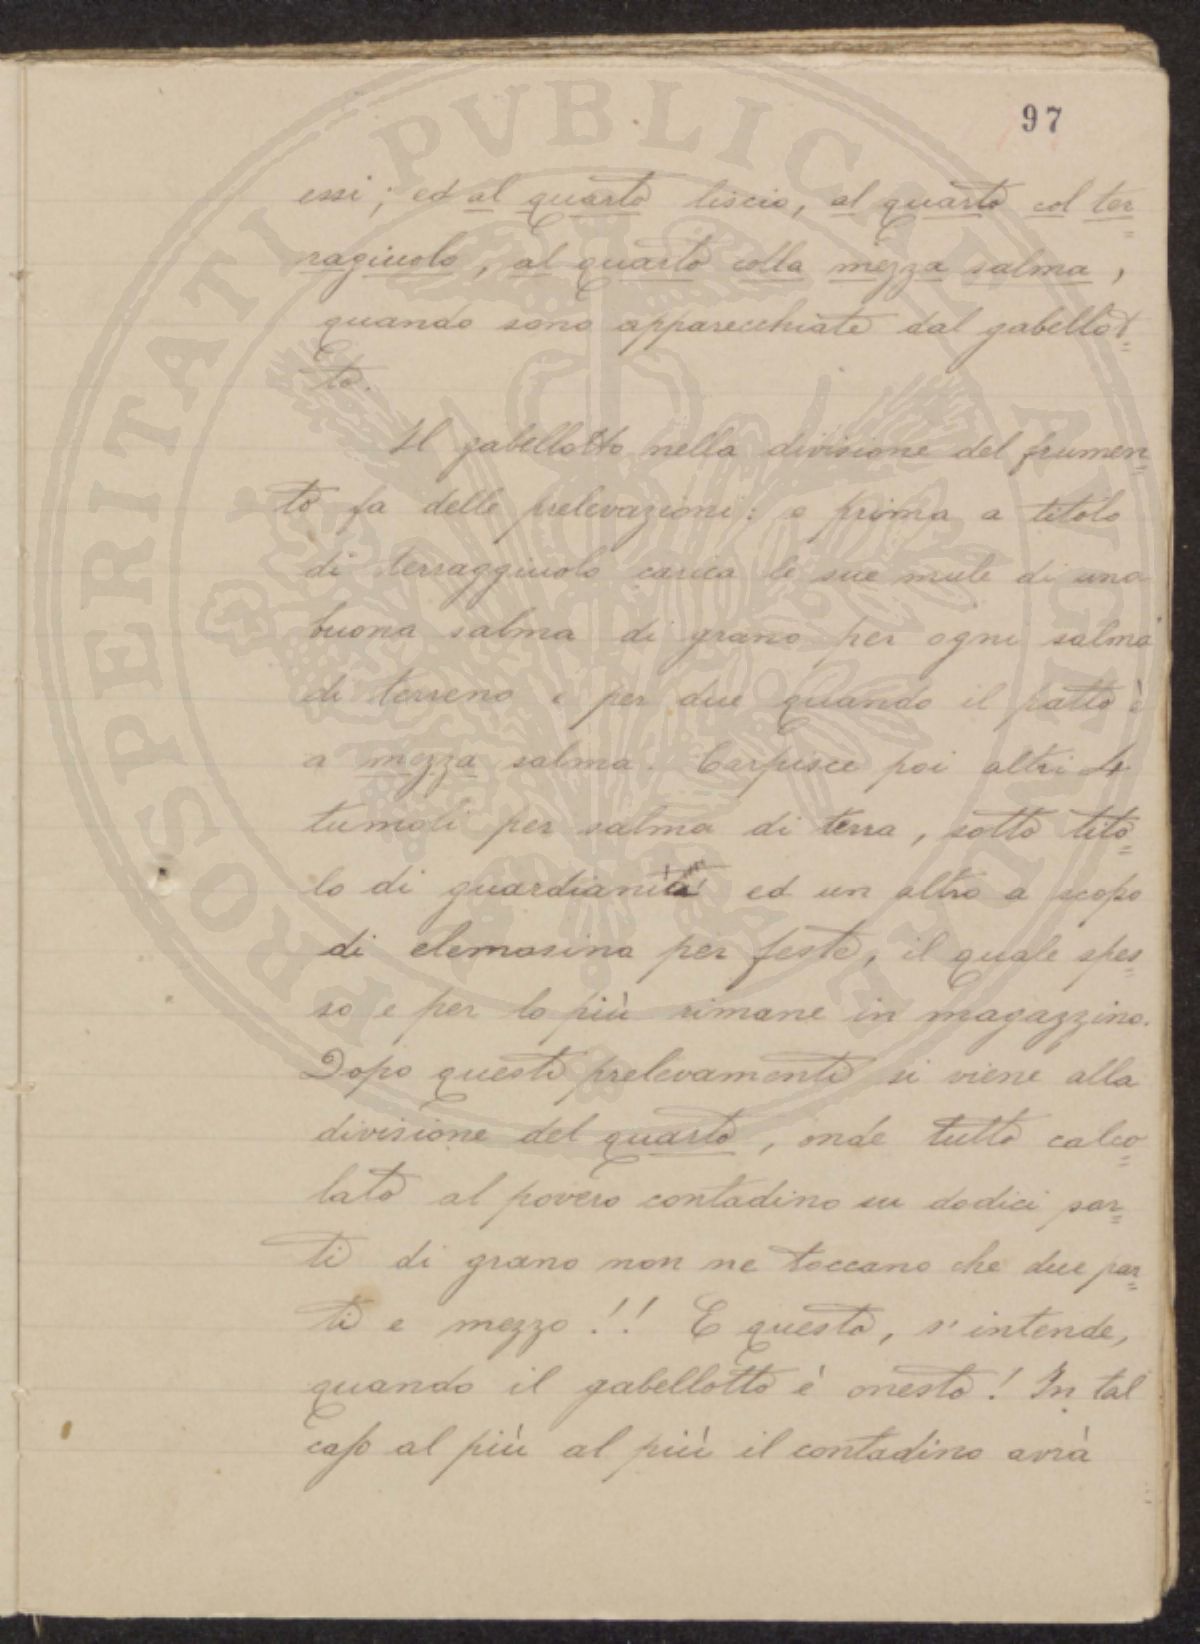 97
essi; ed al quarto liscio, al quarto col ter=
ragiuolo, al quarto colla mezza salma,
quando sono apparecchiate dal gabellot=
to.
Il gabellotto nella divisione del frumen=
to fa delle prelevazioni: e prima a titolo
di terraggiuolo carica le sue mule di una
buona salma di grano per ogni salma
di terreno e per due quando il patto è
a mezza salma. Carpisce poi altri 4
tumoli per salma di terra, sotto tito=
lo di guardianita ed un altro a scopo
di elemosina per feste, il quale spes=
so e per lo più rimane in magazzino.
Dopo questi prelevamenti si viene alla
divisione del quarto, onde tutto calco=
lato al povero contadino su dodici par=
ti di grano non ne toccano che due par=
ti e mezzo!! E questo, s'intende,
quando il gabellotto è onesto! In tal
caso al più al più il contadino avrà
PROSPERITATI PVBLICAE AVGENDAE